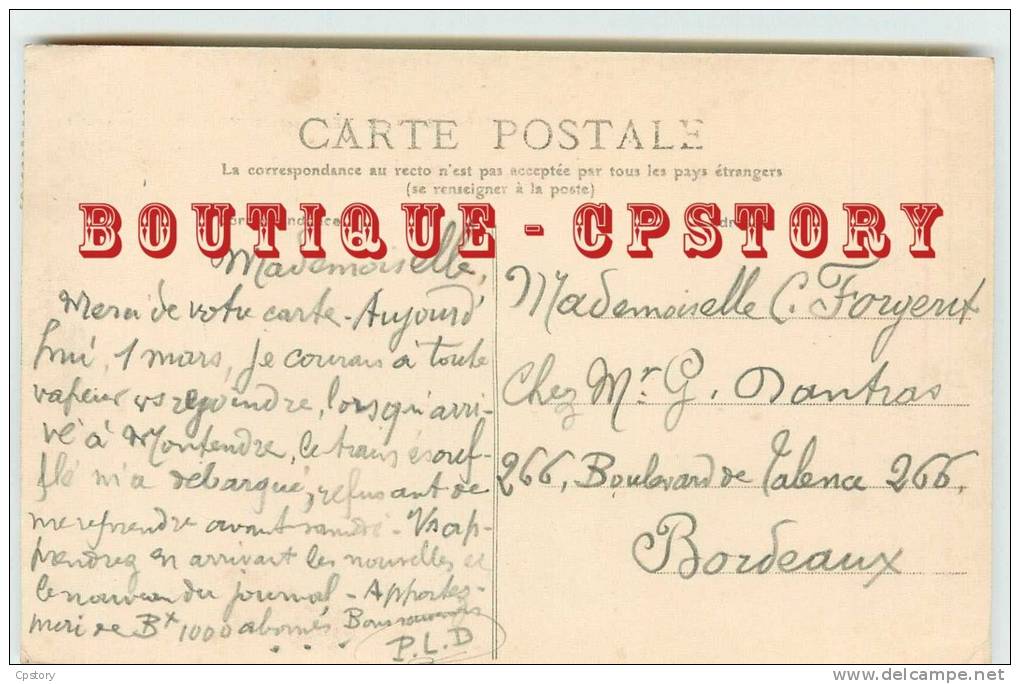 CARTE POSTALE
La correspondance au recto n'est pas acceptée par tous les pays étrangers
(se renseigner à la poste)
BOUTIQUE - CPSTORY
Mademoiselle,
Merci de votre carte - Aujourd'
hui, 1 mars, je courais à toute
vapeur vs rejoindre, lorsqu'arri-
vé à Montendre, le train essouf-
flé m'a débarqué, refusant de
me reprendre avant samedi - Vs ap-
prendrez en arrivant les nouvelles et
le nouveau du journal - Apportez-
moi de Bx 1000 abonnés Bons souvenirs
P.L.D
Mademoiselle C. Forgerit
Chez Mr. G. Dantras
266, Boulevard de Talence 266,
Bordeaux
Cpstory
www.delcampe.net